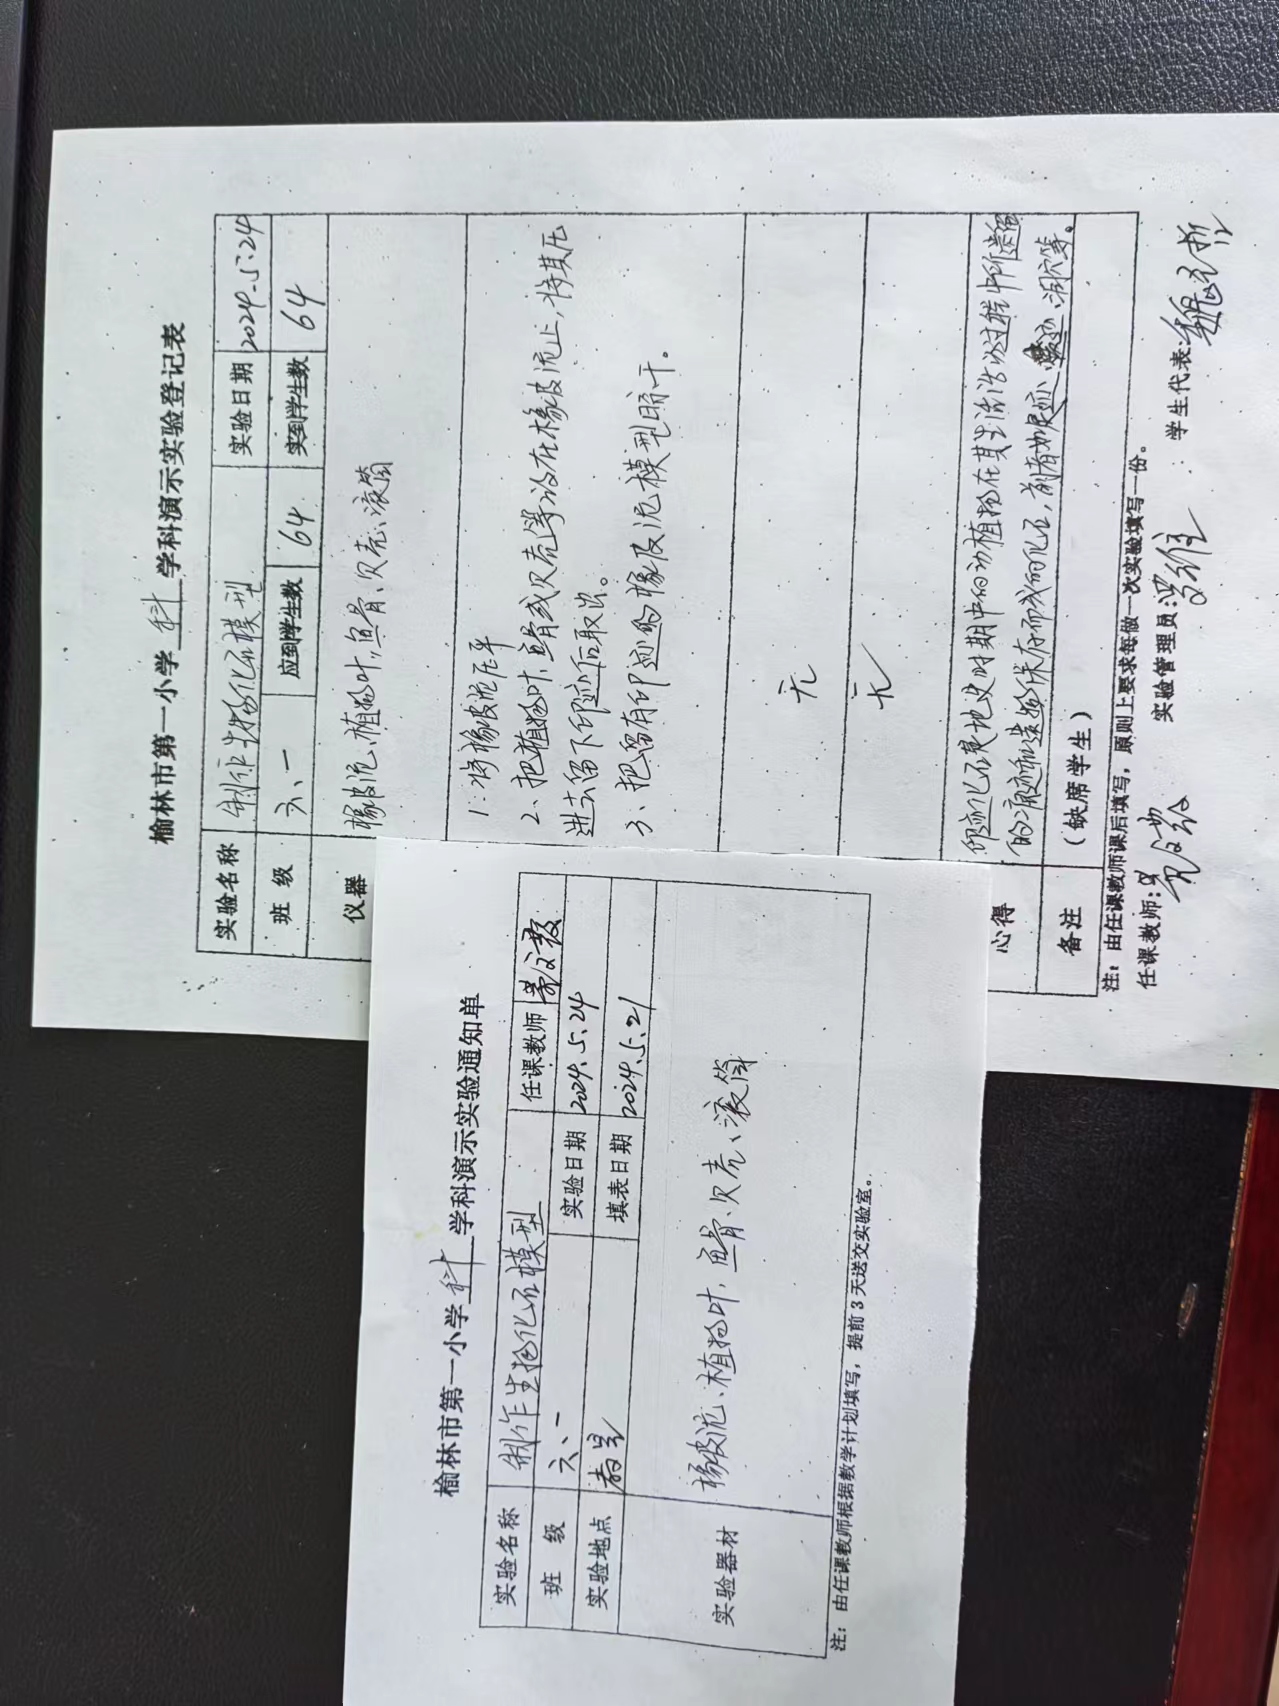 榆林市第一小学 科 学科演示实验登记表
实验名称 制作生物化石模型 实验日期 2024.5.24
班 级 六、一 应到学生数 64 实到学生数 64
仪器 橡皮泥、植物叶、鱼骨、贝壳、滚筒
1、将橡皮泥压平
2、把植物叶、鱼骨或贝壳等放在橡皮泥上,将其压
进去留下印迹后取出。
3、把留有印迹的橡皮泥模型晾干。
无
无
心得 印迹化石是地史时期中的动植物在其生活活动过程中所遗留
的痕迹和遗物保存而成的化石,前者如足迹、洞穴等。
备注 (缺席学生)
注:由任课教师课后填写,原则上要求每做一次实验填写一份。
任课教师: 实验管理员: 学生代表:
榆林市第一小学 科 学科演示实验通知单
实验名称 制作生物化石模型 任课教师
班 级 六、一 实验日期 2024.5.24
实验地点 教室 填表日期 2024.5.21
实验器材 橡皮泥、植物叶、鱼骨、贝壳、滚筒
注:由任课教师根据教学计划填写,提前3天送交实验室。